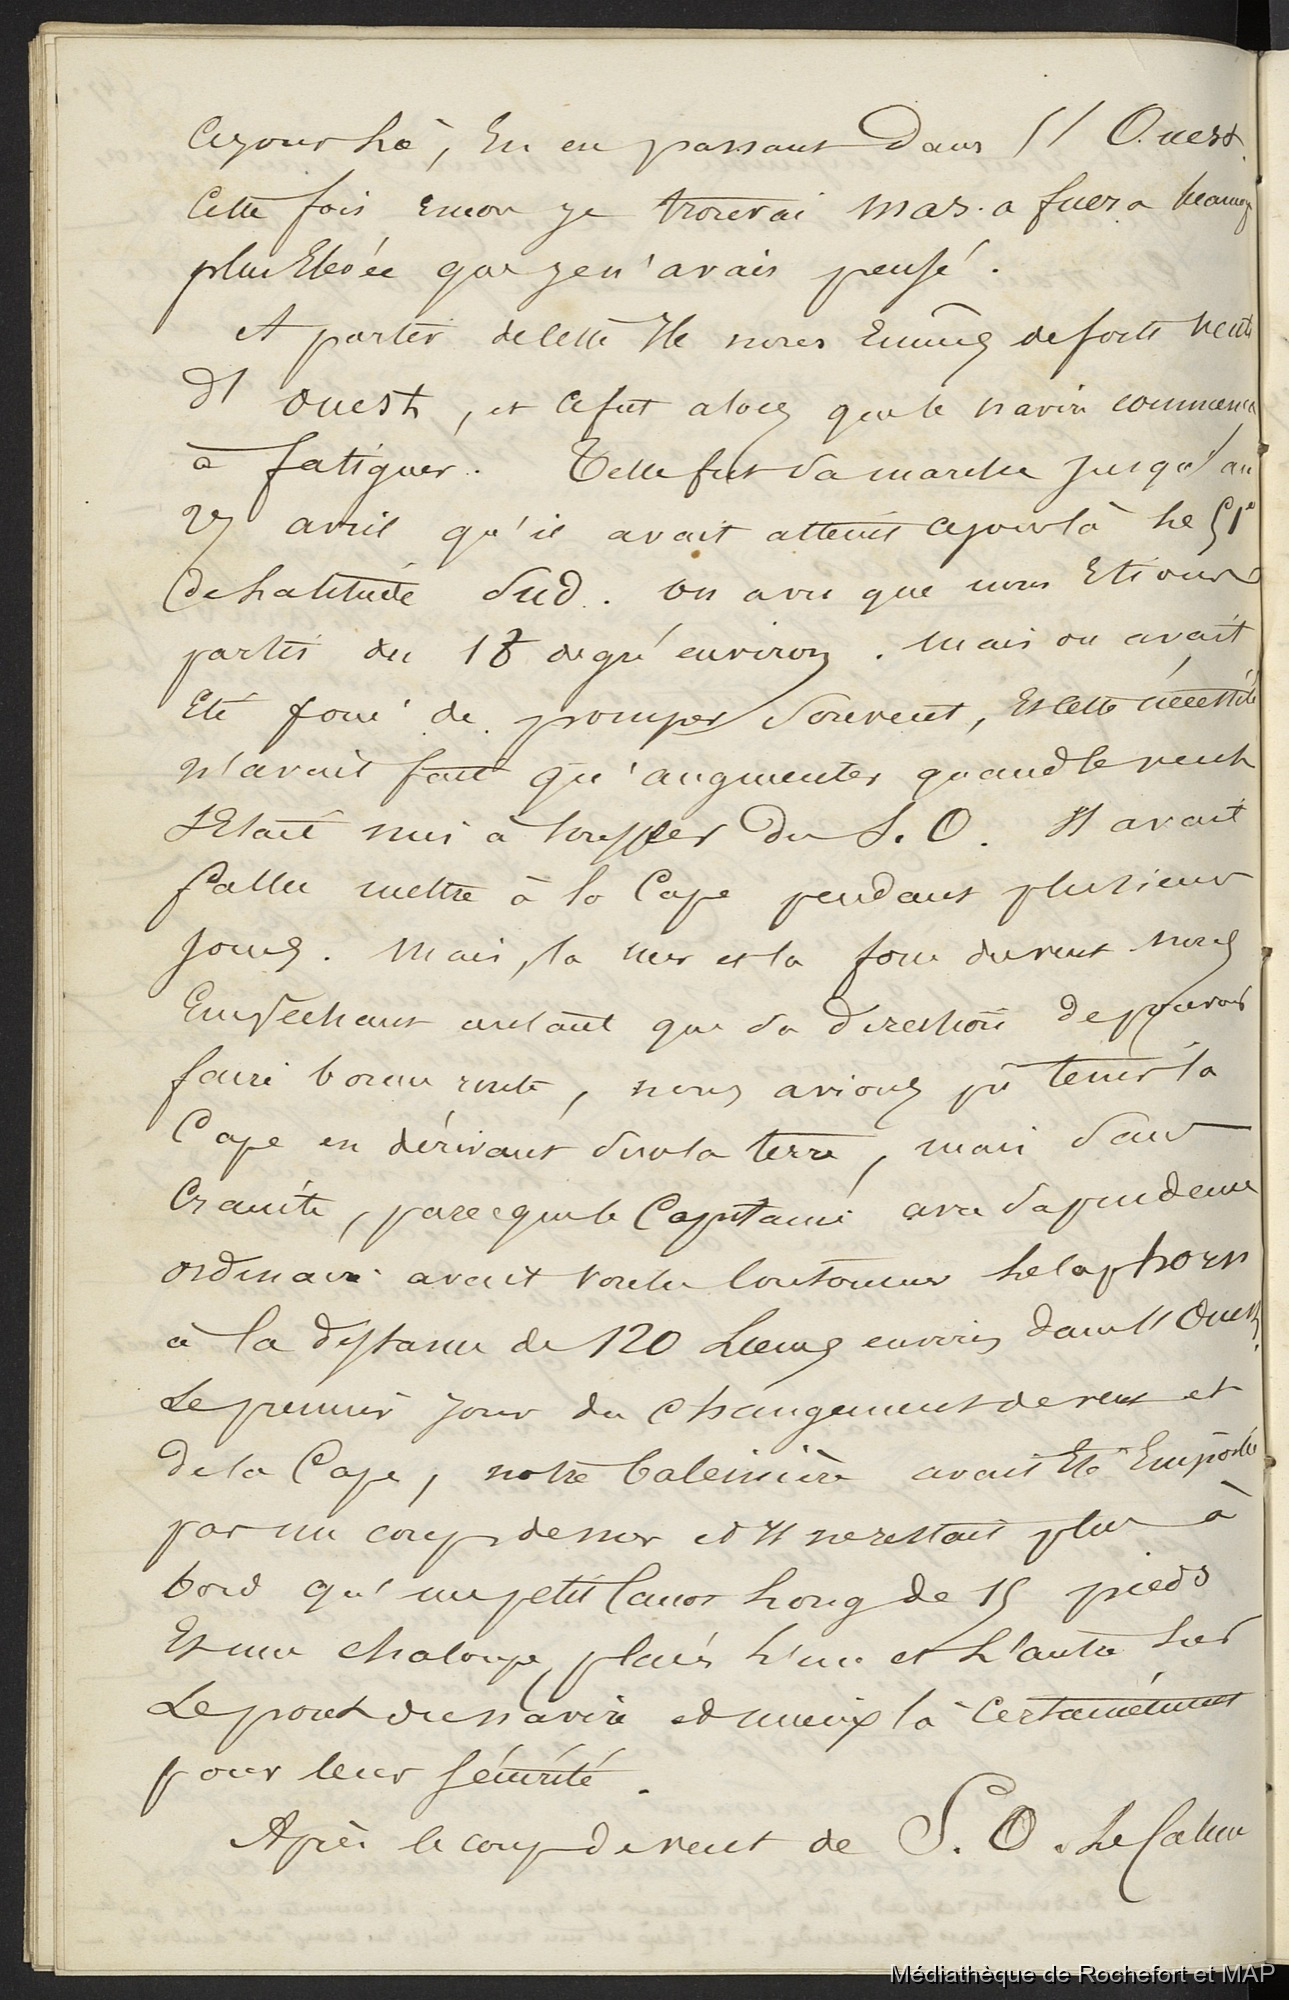 Cejour là, En en passant Dans l'Ouest.
Cette fois encor je trouvai mas.a fuera beaucoup
plus Elevée que je n'avais pensé.
A partir de cette Ile nous Eumes de forts vents
d'ouest, et ce fut alors que le navire commença
à fatiguer. Telle fut sa marche jusqu'au
27 avril qu'il avait atteint ce jour là le 51e
de Latitude Sud. on a vu que nous Etions
partis du 18 degré environ. Mais on avait
Eté forcé de pomper souvent, Et cette nécessité
n'avait fait qu'augmenter quand le vent
s'Etait mis à souffler du S. O. Il avait
fallu mettre à la Cape pendant plusieurs
jours. Mais, la mer et la force du vent nous
Empêchant autant que sa direction de pouvoir
faire bonne route, nous avions pû tenir la
Cape en dérivant sur la terre, mais sans
Crainte, parceque le Capitaine avec sa prudence
ordinaire avait voulu Contourner le Cap horn
à la distance de 120 Lieues environ dans l'Ouest.
Le premier jour du changement de vent et
de la Cape, notre baleinière avait Eté Emportée
par un coup de mer et Il ne restait plus à
bord qu'un petit Canot Long de 15 pieds
Et une chaloupe, placés L'une et L'autre sur
Le pont du navire et mieux là certainement
pour leur sécurité.
Après le coup de vent de S. O. Le Calme
Médiathèque de Rochefort et MAP